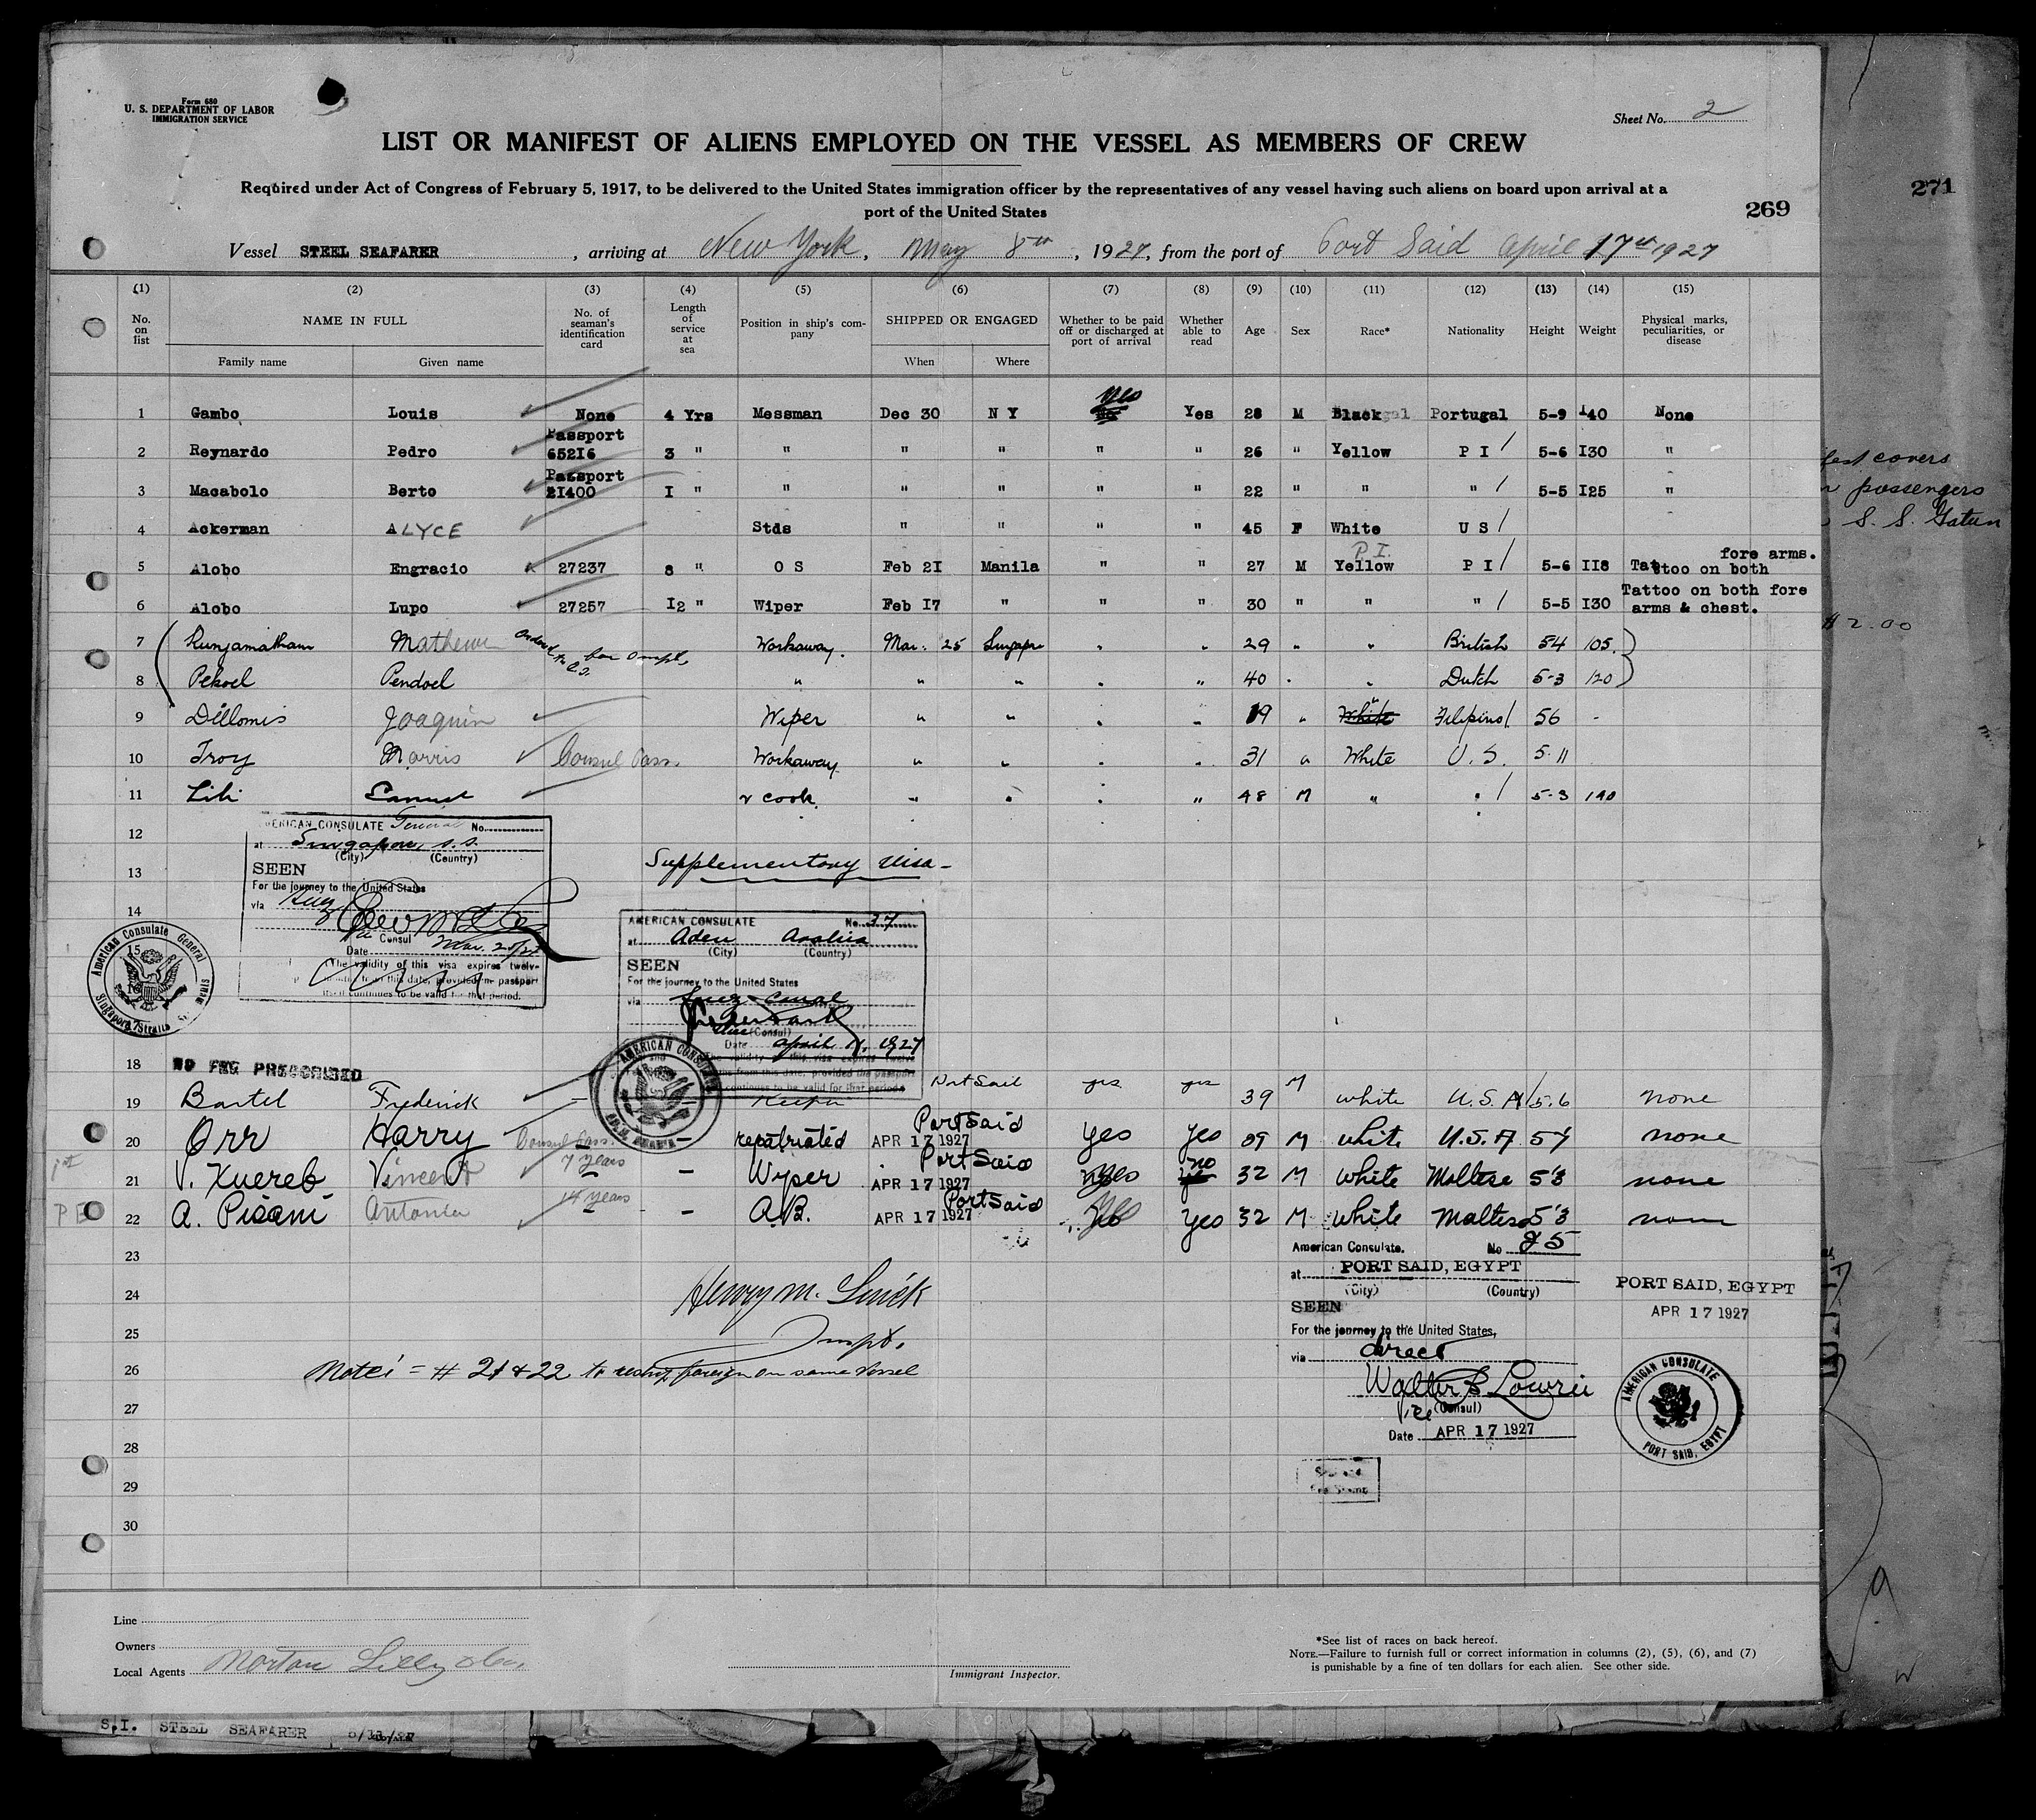 Form 680
U. S. DEPARTMENT OF LABOR
IMMIGRATION SERVICE
Sheet No. 2
LIST OR MANIFEST OF ALIENS EMPLOYED ON THE VESSEL AS MEMBERS OF CREW
Required under Act of Congress of February 5, 1917, to be delivered to the United States immigration officer by the representatives of any vessel having such aliens on board upon arrival at a
port of the United States
269
271
Vessel STEEL SEAFARER, arriving at New York, May 8th, 1927, from the port of Port Said April 17th 1927
(1) (2) (3) (4) (5) (6) (7) (8) (9) (10) (11) (12) (13) (14) (15)
No. on list NAME IN FULL No. of seaman's identification card Length of service at sea Position in ship's company SHIPPED OR ENGAGED Whether to be paid off or discharged at port of arrival Whether able to read Age Sex Race* Nationality Height Weight Physical marks, peculiarities, or disease
Family name Given name When Where
1 Gambo Louis None 4 Yrs Messman Dec 30 N Y Yes Yes 28 M Black Portugal 5-9 140 None
2 Reynardo Pedro Passport 65216 3 " " " " " " 26 " Yellow P I 5-6 130 "
3 Macabolo Berto Passport 21400 1 " " " " " " 22 " " " 5-5 125 "
4 Ackerman ALYCE Stds " " " " 45 F White U S
5 Alobo Engracio 27237 8 " O S Feb 21 Manila " " 27 M Yellow P.I. P I 5-6 118 Tattoo on both fore arms.
6 Alobo Lupo 27257 12 " Wiper Feb 17 " " " 30 " " " 5-5 130 Tattoo on both fore arms & chest.
7 Kunjamatham Mathew Workaway. Mar. 25 Singapore " " 29 " " British 54 105
8 Pekoel Pendoel " " " " " 40 " " Dutch 5-3 120
9 Dillomis Joaquin Wiper " " " " 19 " White " Filipino 56 -
10 Troy Morris Consul Pass. Workaway " " " " 31 " White U. S. 5-11
11 Lili cook " " " " 48 M " " 5-3 140
12
13
14
AMERICAN CONSULATE General No.
at Singapore, S.S.
(City) (Country)
SEEN
For the journey to the United States
via Suez
Consul
Date Mar. 25/27
The validity of this visa expires twelve
from this date, provided the passport
continues to be valid for that period.
American Consulate General
Singapore Straits
Supplementary Visa -
AMERICAN CONSULATE No. 37
at Aden Arabia
(City) (Country)
SEEN
For the journey to the United States
via Suez Canal
Vice (Consul)
Date April 1927
The validity of this visa expires twelve
from this date, provided the passport
continues to be valid for that period.
AMERICAN CONSULATE
15
16
17
18 NO FEE PRESCRIBED
19 Bartel Frederick - Keeper Port Said yes yes 39 M white U.S.A 5.6 none
20 Orr Harry Consul Pass. - repatriated APR 17 1927 Port Said yes yes 39 M white U.S.A 57 none
21 V. Xuereb Vincent 7 years - Wyper APR 17 1927 Port Said yes no 32 M white Maltese 5'3 none
22 A. Pisani Antonio 14 years - A.B. APR 17 1927 Port Said yes yes 32 M white Maltese 5'3 none
23
24
25
26
27
28
29
30
Henry M.
Inspt.
Note: = # 21 & 22 to reship foreign on same vessel
American Consulate. No 25
at PORT SAID, EGYPT
(City) (Country)
SEEN
For the journey to the United States,
via direct
Walter S. Lowrie
Vice (Consul)
Date APR 17 1927
PORT SAID, EGYPT
APR 17 1927
AMERICAN CONSULATE
PORT SAID, EGYPT
Line
Owners
Local Agents Norton Lilly & Co.
Immigrant Inspector.
*See list of races on back hereof.
NOTE.—Failure to furnish full or correct information in columns (2), (5), (6), and (7)
is punishable by a fine of ten dollars for each alien. See other side.
covers
passengers
S. S. Gatun
$2.00
S.I. STEEL SEAFARER